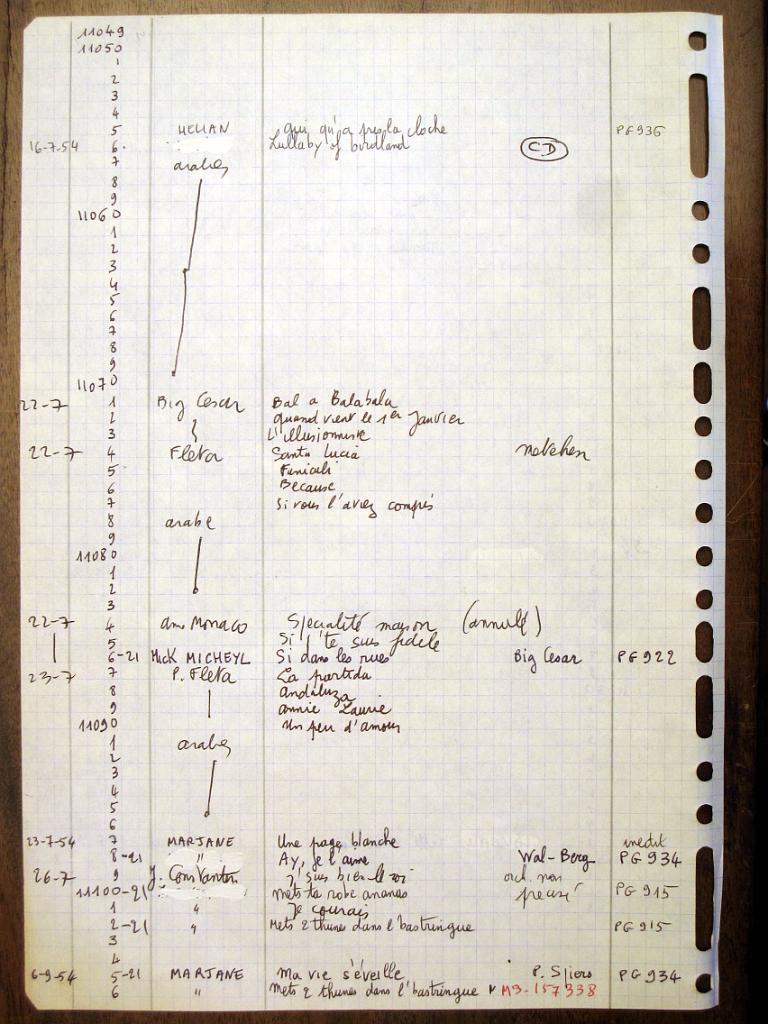 11049
11050
1
2
3
4
5 HELIAN qui qu'a pris la cloche PG 936
16-7-54 6 Lullaby of birdland CD
7 arabes
8
9
11060
1
2
3
4
5
6
7
8
9
11070
22-7 1 Big Cesar Bal a Balabala
2 quand vient le 1er Janvier
3 L'illusionniste
22-7 4 Fleta Santa Lucia
5 Funiculi
6 Because
7 Si vous l'aviez compris
8 arabe
9
11080
1
2
3
22-7 4 Monaco Spécialité maison (annulé)
5 Si j'te suis fidele
6-21 Mick MICHEYL Si dans les rues Big Cesar PG 922
23-7 7 P. Fleta La partida
8 Andaluza
9 annie Laurie
11090 Un peu d'amour
1 arabes
2
3
4
5
6
23-7-54 7 MARJANE Une page blanche inedit
8-21 " Ay, je l'aime Wal-Berg PG 934
26-7 9 J. Constantin J'suis bien le roi orch. non
11100-21 mets ta robe ananas precisé PG 915
1 " Je courais
2-21 " Mets 2 thunes dans l'bastringue PG 915
3
4
6-9-54 5-21 MARJANE Ma vie s'éveille P. Spiers PG 934
6 " Mets 2 thunes dans l'bastringue M3-157338